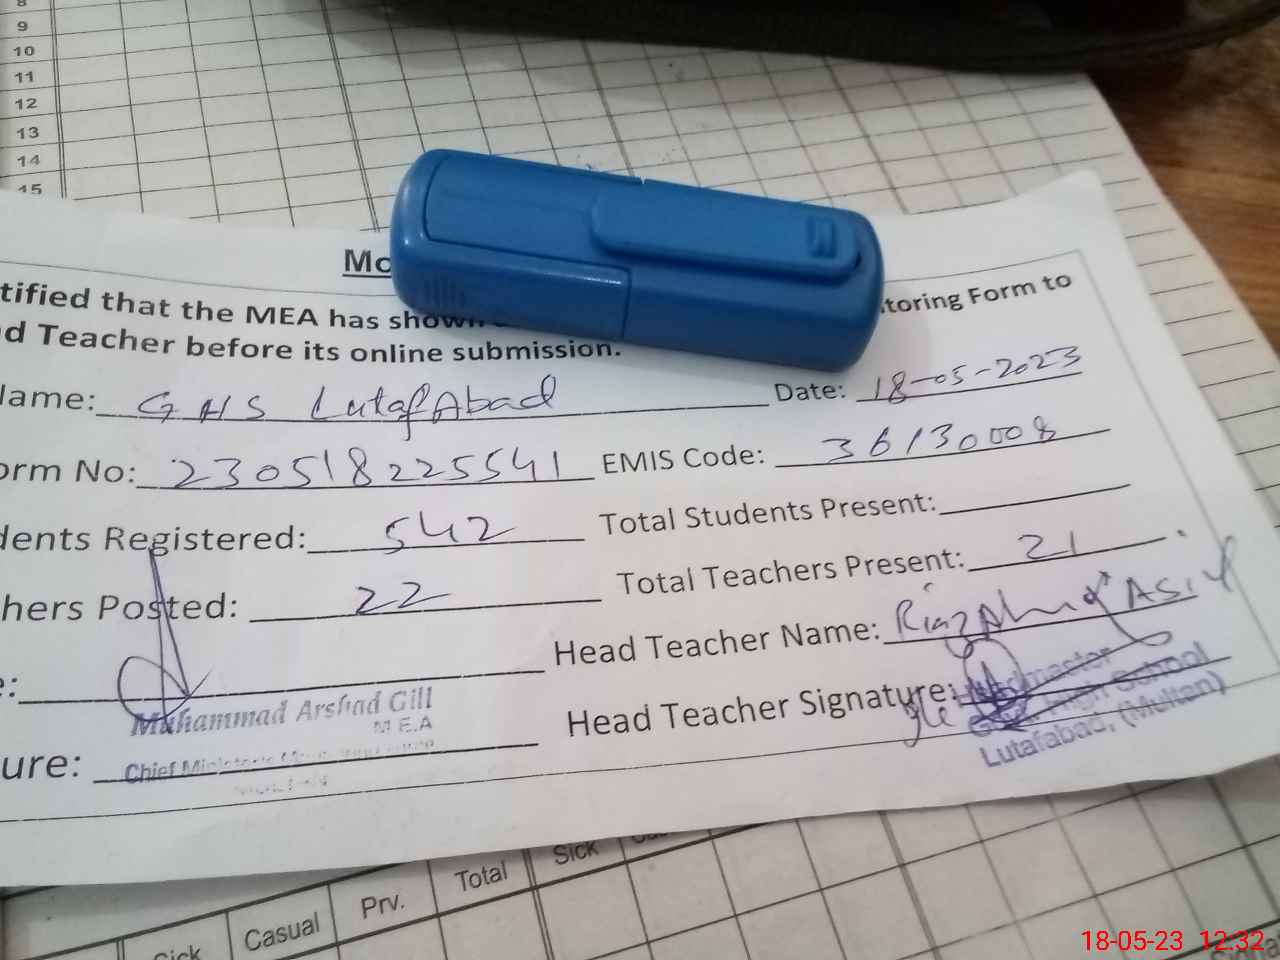 8
9
10
11
12
13
14
15
Mo
tified that the MEA has shown toring Form to
d Teacher before its online submission.
lame: GHS LutafAbad Date: 18-05-2023
orm No: 230518225541 EMIS Code: 36130008
dents Registered: 542 Total Students Present:
hers Posted: 22 Total Teachers Present: 21
Head Teacher Name: Riaz Ahmad Asif
e:
Muhammad Arshad Gill
M.E.A
Head Teacher Signature:
Headmaster
Govt. High School
Lutafabad, (Multan)
ure: Chief Minister's
Sick Casual Prv. Total Sick
18-05-23 12:32